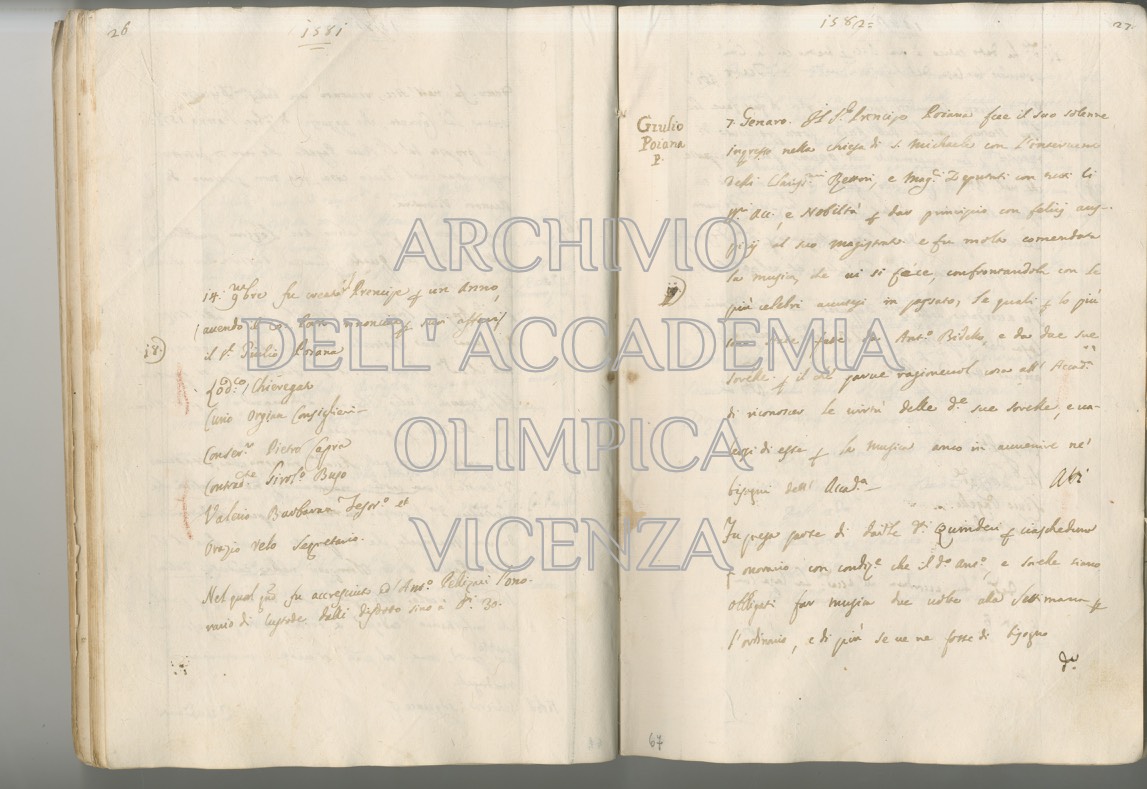 26
1581
14. 9bre fu creato Prencipe p un Anno,
avendo il Co: rinonciato p suoi affari
il Sr Giulio Poiana
18.
Lodco Chieregato
Curio Orgian Consiglieri
Conserre Pietro Capra
Contradte Girolo Buso
Valerio Barbaran Tesorº et
Orazio Velo Segretario.
Nel qual giorno fu accresciuto ad Antº Pelizari l'ono-
rario di Custode delli Istrti sino a Di 30.
1582=
27.
Giulio
Poiana
P.
7. Genaro. Il Sr Prencipe Poiana fece il suo solenne
ingresso nella chiesa di S. Michaele con l'intervento
delli Clarissimi Rettori, e Magci Deputati con tutti li
Sri Acci, e Nobiltà p dar principio con felicij aus-
picij al suo Magistrato e fu molto comendata
la musica, che ivi si fece, confrontandola con le
più celebri accadute in passato, le quali p lo più
sono state fatte da Antº Bideloo, e da due sue
sorelle. p il che parve ragionevol cosa all' Accada
di riconoscer le virtù delle de sue sorelle, e va-
lersi di esse p la Musica anco in avvenire ne'
bisogni dell' Accada
Atti
Fu presa parte di darle Di Quindeci p ciascheduna
p onorario con condize che il do Antº, e sorelle siano
obligati far musica due volte alla settimana p
l'ordinario, e di più se ve ne fosse di bisogno
67
ARCHIVIO
DELL' ACCADEMIA
OLIMPICA
VICENZA